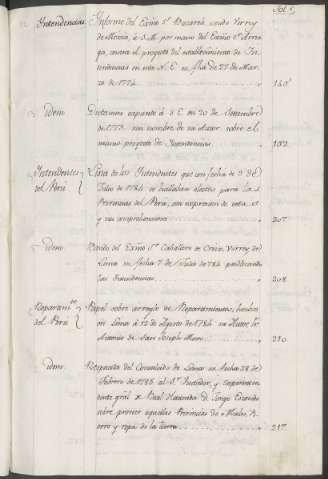 Fol.s
Intendencias. Informe del Exmo S.r Bucareli siendo Virrey
de Mexico, à S.M. por mano del Exmo S.r Arria-
ga, contra el proyecto del establecimiento de In-
tendencias en este N. E. su fha de 27 de Mar-
zo de 1774. 180
idem. Dictamen expuesto à S E en 20 de Settembre
de 1773 sobre el
mismo proyecto de Intendencias. 192
Intendentes del Perú Lista de los Intendentes que con fecha de 9 de
Julio de 1784 se hallaban electos para las
Provincias del Perú, con expresion de
y sus 207
idem. Bando del Exmo S.r Caballero de Croix Virrey de
Lima su fecha 7 de Julio de 1784 publicando
las Intendencias. 208
Repartim.tos del Perú Papel sobre arreglo de Repartimientos, hecho
en Lima à 12 de Agosto de 1784 su Autor, D.n
Antonio de San Joseph Muro. 210
idem. Respuesta del Consulado de Lima su fecha 28 de
Febrero de 1785 al S.r Visitador, y Superinten
dente gral de Real Hacienda D. Jorge Escobedo
sobre proveer aquellas Provincias de Mulas, Fi-
erro y ropa de la tierra. 217